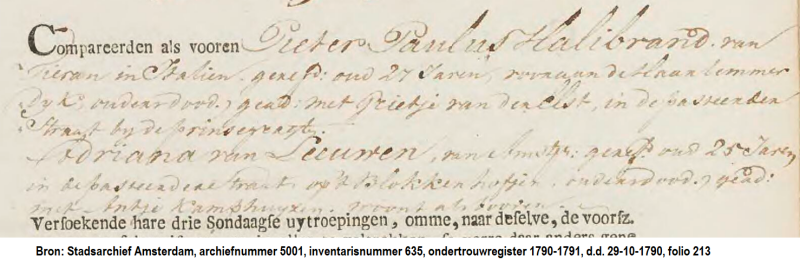 Compareerden als vooren Pieter Paulus Halibrand. van
Tieran in Italien. geref: oud 27 Jaren, woond aan de Haarlemmer
Dyk, ouders dood. gead: met Grietje van den Elst, in de pasteenden
Straat by de prinsegragt.
Adriana van Leeuwen, van Amst: geref: oud 25 Jaren,
in de pasteendenstraat op't Blokkenhofjen, ouders dood. gead:
met Antje Kamphuyzen, woont als vooren.
Versoekende hare drie Sondaagse uytroepingen, omme, naar deselve, de voorsz.
Bron: Stadsarchief Amsterdam, archiefnummer 5001, inventarisnummer 635, ondertrouwregister 1790-1791, d.d. 29-10-1790, folio 213